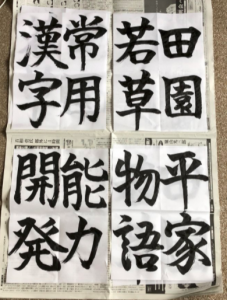 常用
漢字
田園
若草
能力
開発
平家
物語